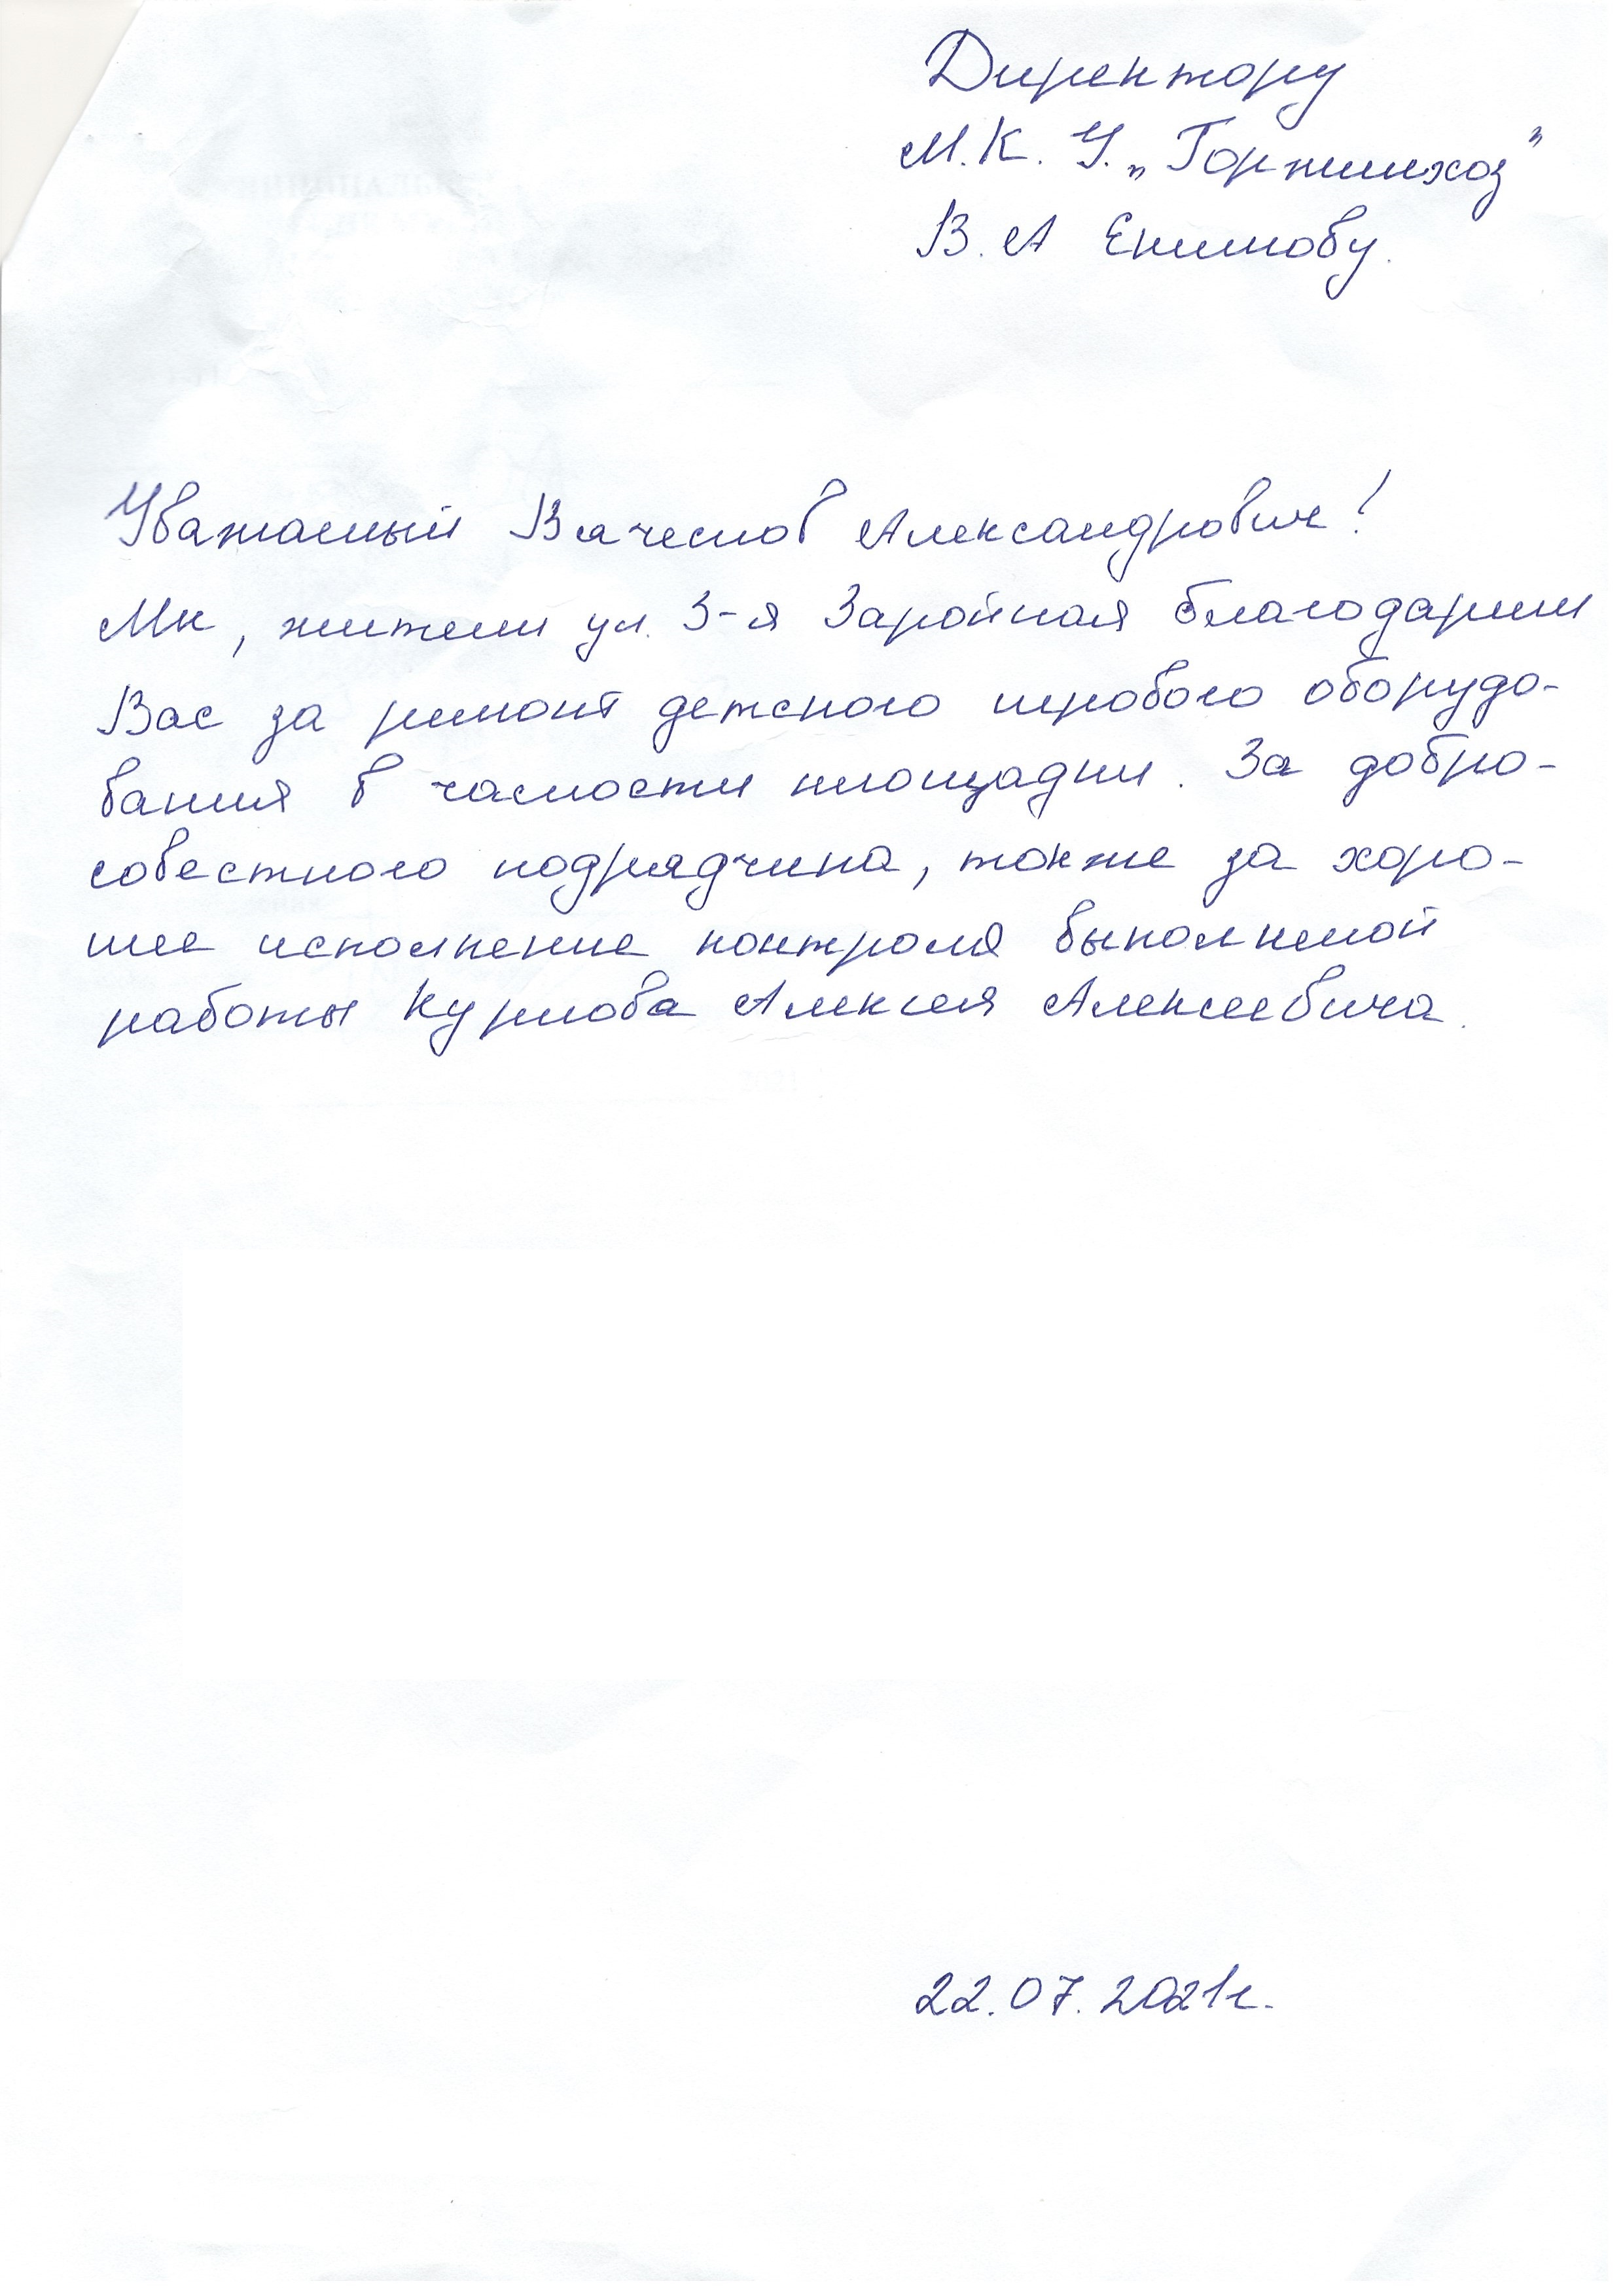 Директору
М.К.У. „Горжилхоз"
В.А Екимову.
Уважаемый Вячеслав Александрович!
Мы, жители ул. 3-я Заройная благодарим
Вас за ремонт детского игрового оборудо-
вания в частности площадки. За добро-
совестного подрядчика, также за хоро-
шее исполнение контроля выполнемой
работы Курлова Алексея Алексеевича.
22.07.2021г.